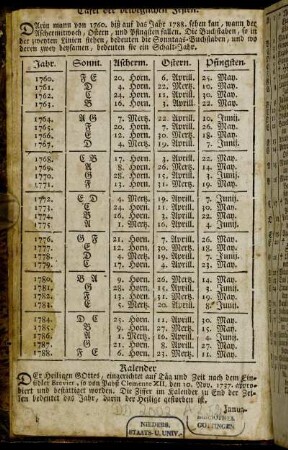 Tafel der beweglichen Festen.
Darin man von 1760. biß auf das Jahr 1788. sehen kan, wann der
Aschermittwoch, Ostern, und Pfingsten fallen. Die Buchstaben, so in
der zweyten Linien stehen, bedeuten die Sonntags-Buchstaben, und wo
deren zwey beysamen, bedeuten sie ein Schalt-Jahr.
Jahr. Sonnt. Ascherm. Ostern. Pfingsten.
1760. F E 20. Horn. 6. Aprill. 25. May.
1761. D 4. Horn. 22. Mertz. 10. May.
1762. C 24. Horn. 11. Aprill. 30. May.
1763. B 16. Horn. 3. Aprill. 22. May.
1764. A G 7. Mertz. 22. Aprill. 10. Junij.
1765. F 20. Horn. 7. Aprill. 26. May.
1766. E 12. Horn. 30. Mertz. 18. May.
1767. D 4. Mertz. 19. Aprill. 7. Junij.
1768. C B 17. Horn. 3. Aprill. 22. May.
1769. A 8. Horn. 26. Mertz. 14. May.
1770. G 28. Horn. 15. Aprill. 3. Junij.
1771. F 13. Horn. 31. Mertz. 19. May.
1772. E D 4. Mertz. 19. Aprill. 7. Junij.
1773. C 24. Horn. 11. Aprill. 30. May.
1774. B 16. Horn. 3. Aprill. 22. May.
1775. A 1. Mertz. 16. Aprill. 4. Junij.
1776. G F 21. Horn. 7. Aprill. 26. May.
1777. E 12. Horn. 30. Mertz. 18. May.
1778. D 4. Mertz. 19. Aprill. 7. Junij.
1779. C 17. Horn. 4. Aprill. 23. May.
1780. B A 9. Horn. 26. Mertz. 14. May.
1781. G 28. Horn. 15. Aprill. 3. Junij.
1782. F 13. Horn. 31. Mertz. 19. May.
1783. E 5. Mertz. 20. Aprill. 8. Junij.
1784. D C 25. Horn. 11. Aprill. 30. May.
1785. B 9. Horn. 27. Mertz. 15. May.
1786. A 1. Mertz. 16. Aprill. 4. Junij.
1787. G 21. Horn. 8. Aprill. 27. May.
1788. F E 6. Horn. 23. Mertz. 11. May.
Kalender
Der Heiligen GOttes, eingerichtet auf Tag und Zeit nach dem Ein-
sidler Brevier, so von Pabst Clemente XII. den 10. Nov. 1737. appro-
biert und bestättiget worden. Die Ziffer im Kalender zu End der Zei-
len bedeutet das Jahr, darin der Heilige gestorben ist.
Janua-
NIEDERS.
STAATS-U. UNIV.-
BIBLIOTHEK
GÖTTINGEN